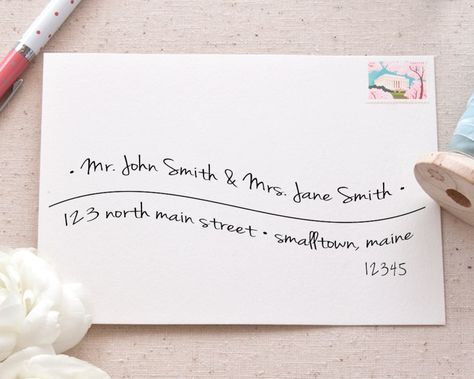 • Mr. John Smith & Mrs. Jane Smith •
123 north main street • smalltown, maine
12345